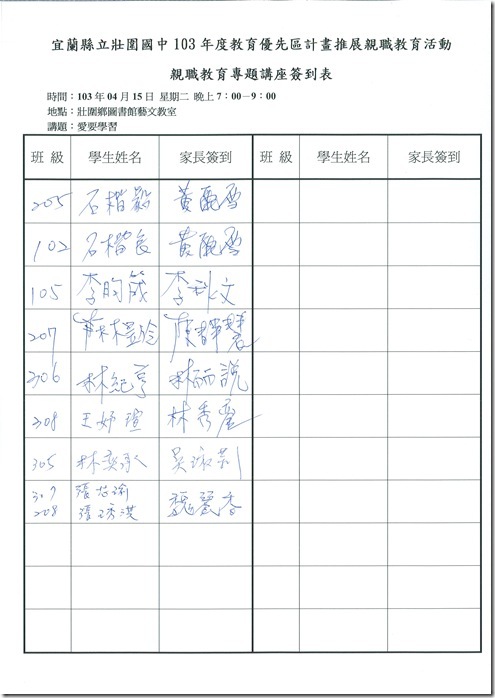 宜蘭縣立壯圍國中 103 年度教育優先區計畫推展親職教育活動
親職教育專題講座簽到表
時間：103 年 04 月 15 日 星期二 晚上 7：00－9：00
地點：壯圍鄉圖書館藝文教室
講題：愛要學習
班 級 學生姓名 家長簽到 班 級 學生姓名 家長簽到
205 石楷毅 黃
102 石楷 黃
105 李昀筬 李秋文
207
306 林紀亨 林 說
308 王妤瑄 林秀
305 林奕承 吳淑
307 張芯瑜 魏麗香
208 張 淇